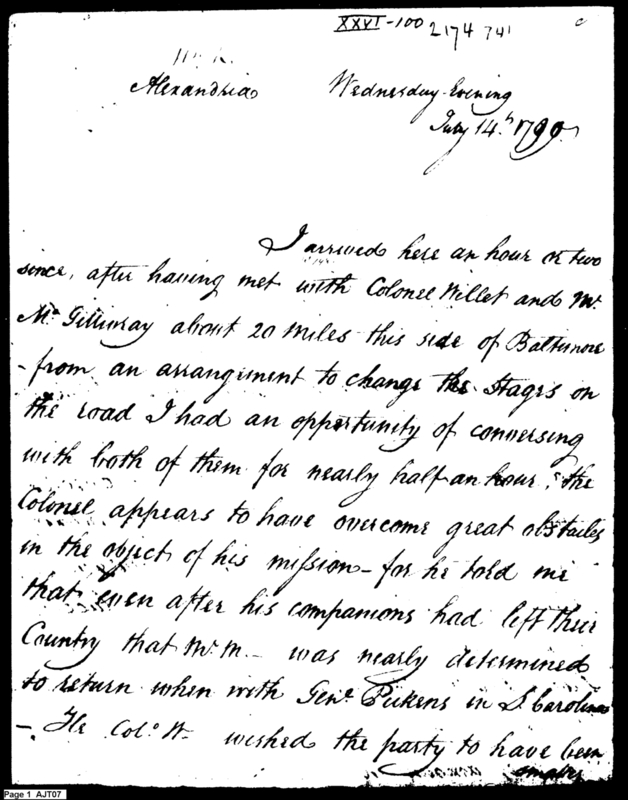 XXVI-100 2174 741
C
Alexandria Wednesday-Evening
July 14th 1790.
I arrived here an hour or two
since, after having met with Colonel Willet and Mr.
Mc Gilliuray about 20 Miles this side of Baltimore
- from an arrangement to change the Stages on
the road I had an opportunity of conversing
with both of them for nearly half an hour; the
Colonel appears to have overcome great obstacles
in the object of his mission - for he told me
that even after his companions had left their
Country that Mr. M. - was nearly determined
to return when with Genl. Pickens in S. Carolina
-. He Colo. W. wished the party to have been
smaller
Page 1 AJT07